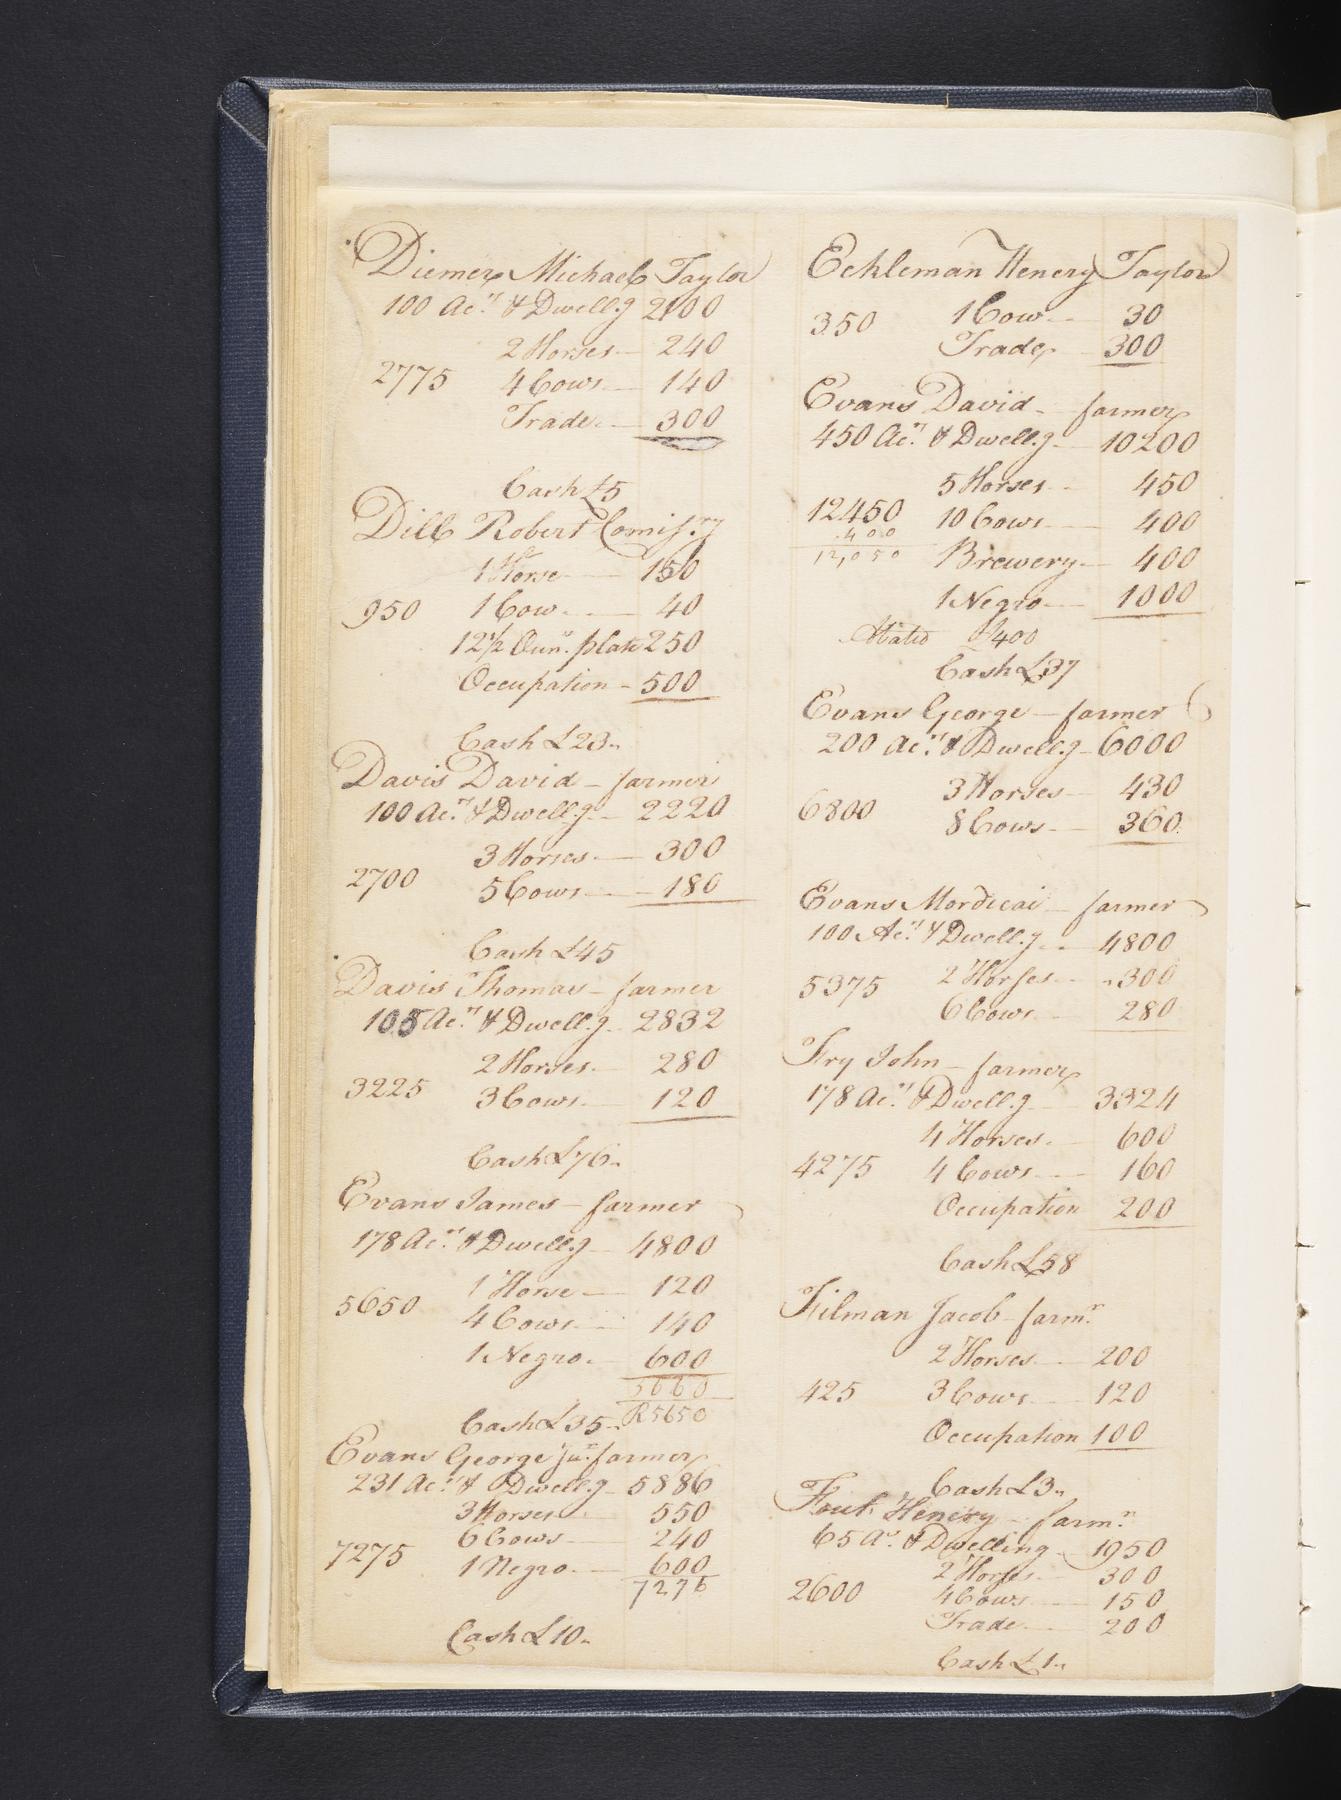 Diemer Michael Taylor
100 Acrs & Dwell.g 2100
2 Horses — 240
2775 4 Cows — 140
Trade — 300
Cash £5
Dill Robert Comiss.ry
1 Horse — 150
950 1 Cow — 40
12½ Oun.s plate 250
Occupation – 500
Cash £23
Davis David – farmer
100 Acrs & Dwell.g – 2220
3 Horses — 300
2700 5 Cows — 180
Cash £45
Davis Thomas – farmer
105 Acrs & Dwell.g – 2832
2 Horses — 280
3225 3 Cows — 120
Cash £76
Evans James – farmer
178 Acrs & Dwell.g – 4800
1 Horse — 120
5650 4 Cows — 140
1 Negro — 600
5660
Cash £35 R5650
Evans George jur farmer
231 Acrs & Dwell.g – 5886
3 Horses 550
6 Cows — 240
7275 1 Negro — 600
7276
Cash £10
Eckleman Henery Taylor
350 1 Cow — 30
Trade 300
Evans David – farmer
450 Acrs & Dwell.g — 10200
5 Horses – 450
12450 10 Cows — 400
400
12,050 Brewery — 400
1 Negro — 1000
Abated 400
Cash £37
Evans George – farmer
200 Acrs & Dwell.g – 6000
3 Horses — 430
6800 8 Cows — 360
Evans Mordicai – farmer
100 Acrs & Dwell.g – 4800
5375 2 Horses — 300
6 Cows — 280
Fry John – farmer
178 Acrs & Dwell.g — 3324
4 Horses — 600
4275 4 Cows — 160
Occupation 200
Cash £58
Filman Jacob – farmr
2 Horses — 200
425 3 Cows — 120
Occupation 100
Cash £3
Henery – farmr
65 As & Dwelling – 1950
2 Horses — 300
2600 4 Cows — 150
Trade — 200
Cash £1